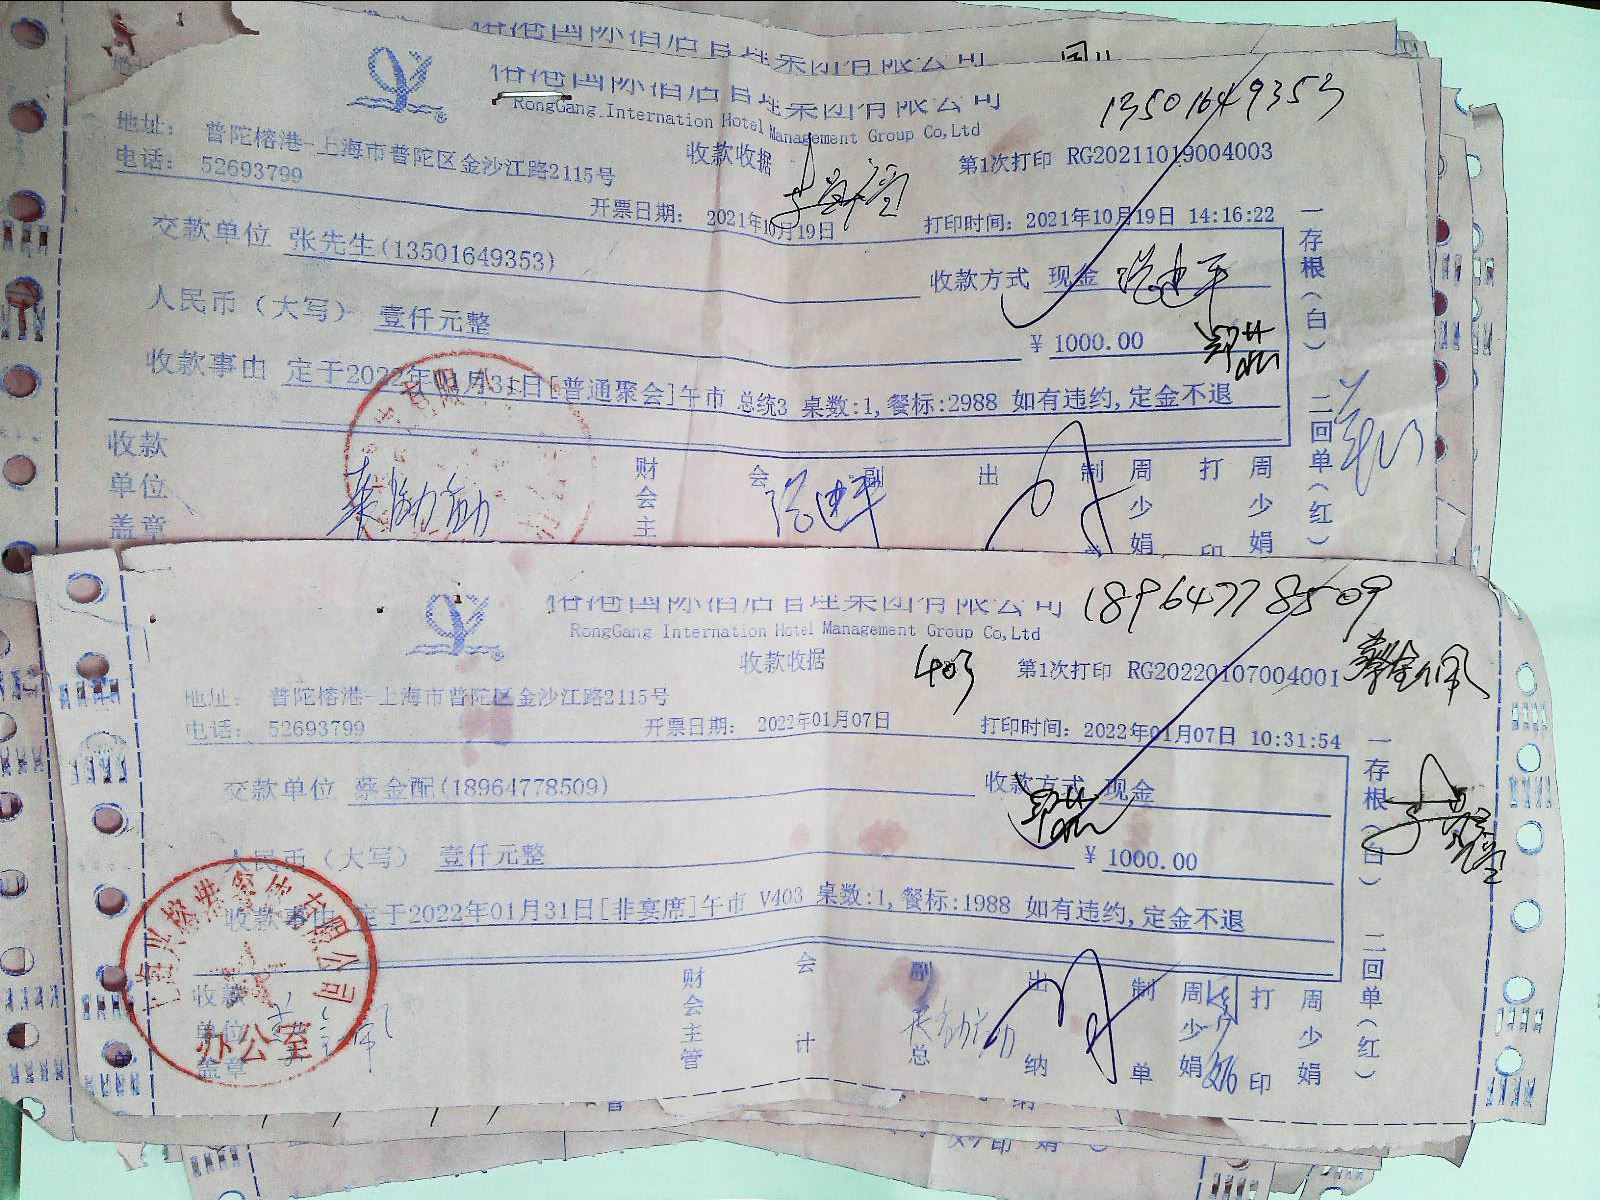 国际酒店管理集团有限公司
榕港国际酒店管理集团有限公司
RongGang International Hotel Management Group Co,Ltd
13501649353
地址： 普陀榕港-上海市普陀区金沙江路2115号
收款收据
第1次打印 RG20211019004003
电话： 52693799
开票日期： 2021年10月19日
打印时间：2021年10月19日 14:16:22
交款单位 张先生(13501649353)
收款方式 现金 张建平
人民币（大写） 壹仟元整
¥ 1000.00
收款事由 定于2022年01月31日[普通聚会]午市 总统3 桌数:1,餐标:2988 如有违约,定金不退
一存根(白) 二回单(红)
收款单位盖章
财会主
会
副
出
制
周少娟
打印
周少娟
张建平
榕港国际酒店管理集团有限公司
RongGang International Hotel Management Group Co,Ltd
18964778509
收款收据
403
第1次打印 RG20220107004001
蔡金佩
地址： 普陀榕港-上海市普陀区金沙江路2115号
电话： 52693799
开票日期： 2022年01月07日
打印时间：2022年01月07日 10:31:54
交款单位 蔡金配(18964778509)
收款方式 现金
人民币（大写） 壹仟元整
¥ 1000.00
收款事由 定于2022年01月31日[非宴席]午市 V403 桌数:1,餐标:1988 如有违约,定金不退
一存根(白) 二回单(红)
收款单位盖章
办公室
财会主管
会计
副总
出纳
制单
周少娟
打印
周少娟